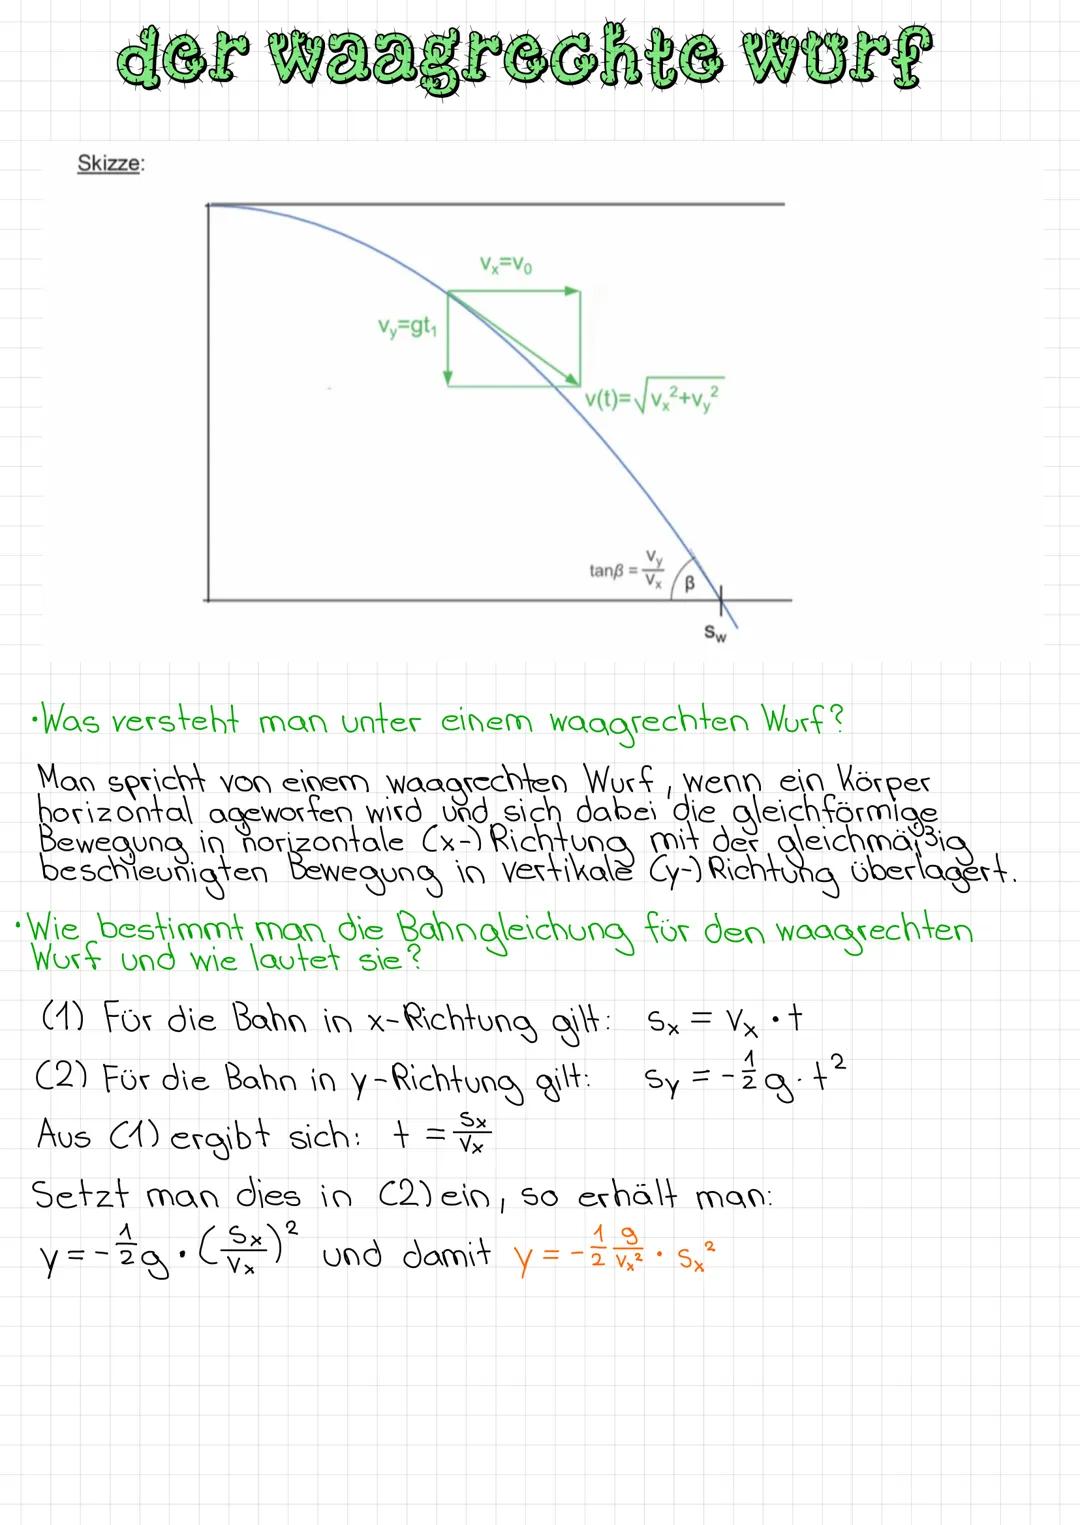 der waagrechte wurf
Skizze:
vₓ=v₀
v_y=gt₁
v(t)=√(vₓ²+v_y²)
tanβ = v_y/vₓ
β
s_w
·Was versteht man unter einem waagrechten Wurf?
Man spricht von einem waagrechten Wurf, wenn ein Körper
horizontal ageworfen wird und sich dabei die gleichförmige
Bewegung in horizontale (x-) Richtung mit der gleichmäßig
beschleunigten Bewegung in vertikale (y-) Richtung überlagert.
·Wie bestimmt man die Bahngleichung für den waagrechten
Wurf und wie lautet sie?
(1) Für die Bahn in x-Richtung gilt: sₓ = vₓ · t
(2) Für die Bahn in y-Richtung gilt: s_y = -1/2 g · t²
Aus (1) ergibt sich: t = sₓ/vₓ
Setzt man dies in (2) ein, so erhält man:
y = -1/2 g · (sₓ/vₓ)² und damit y = -1/2 g/vₓ² · sₓ²